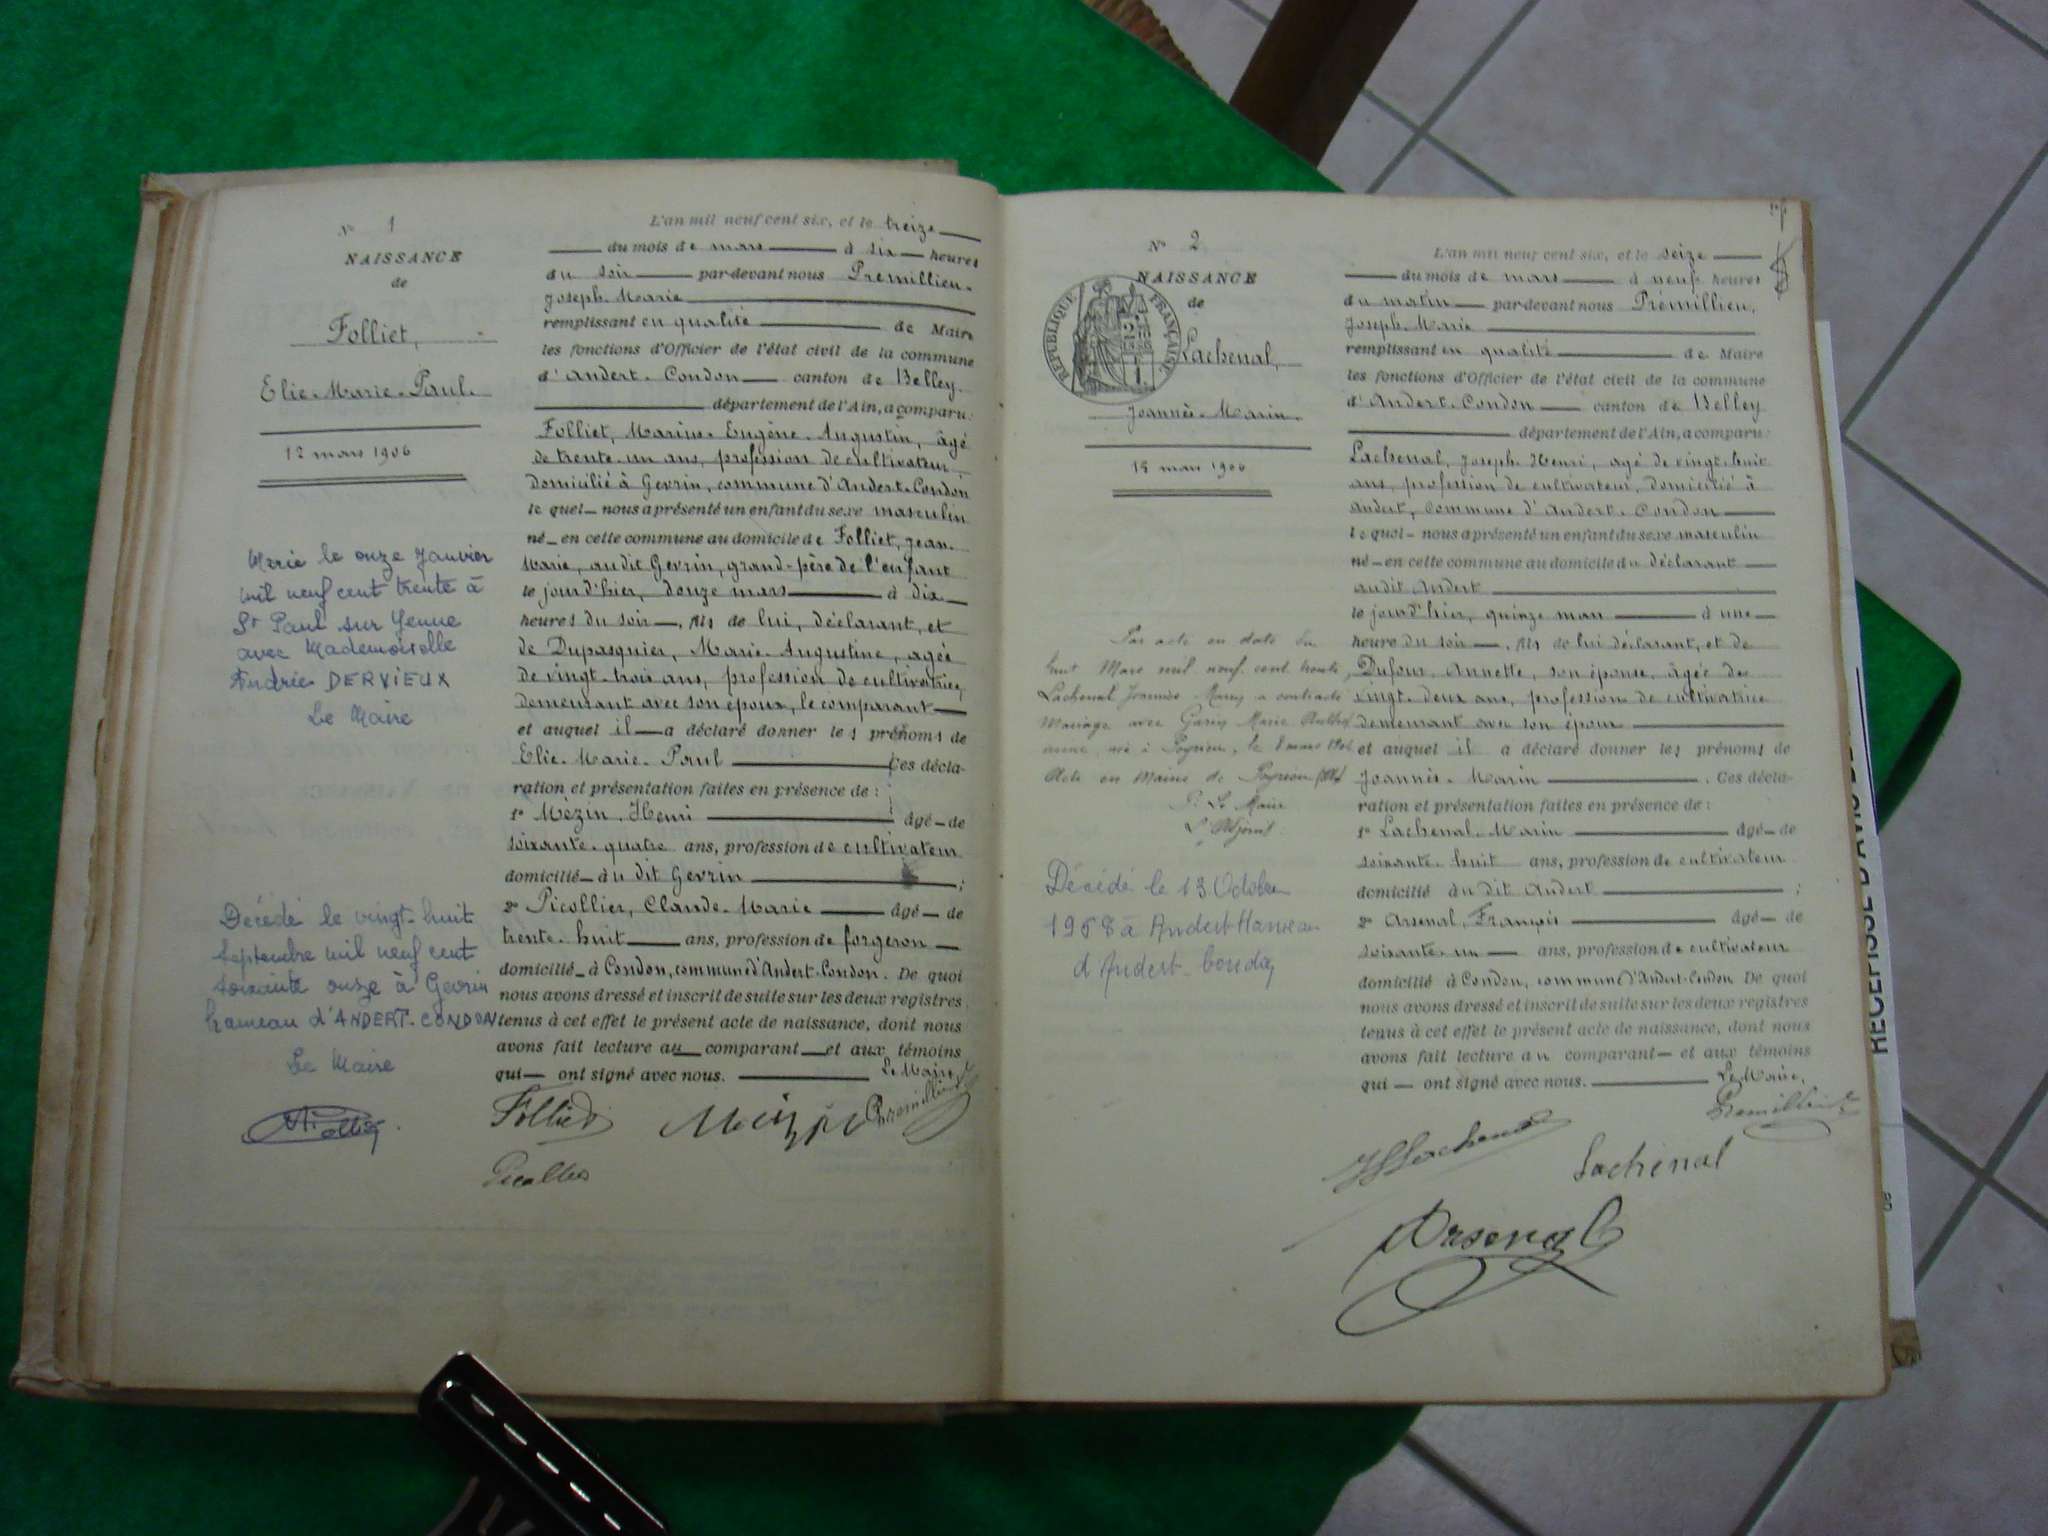 N° 1
NAISSANCE
de
Folliet,
Elie-Marie-Paul.
12 mars 1906
Marié le onze Janvier
mil neuf cent trente à
St Paul sur Yenne
avec Mademoiselle
Andrée DERVIEUX
Le Maire
Décédé le vingt-huit
Septembre mil neuf cent
soixante onze à Gevrin
hameau d'ANDERT-CONDON
Le Maire
L'an mil neuf cent six, et le treize
du mois de mars à six heures
du soir par-devant nous Prémillieu,
Joseph-Marie
remplissant en qualité de Maire
les fonctions d'Officier de l'état civil de la commune
d'Andert-Condon canton de Belley
département de l'Ain, a comparu:
Folliet, Marius-Eugène-Augustin, âgé
de trente-un ans, profession de cultivateur,
domicilié à Gevrin, commune d'Andert-Condon
le quel nous a présenté un enfant du sexe masculin
né en cette commune au domicile de Folliet, Jean-
Marie, au dit Gevrin, grand-père de l'enfant
le jour d'hier, douze mars à dix
heures du soir, fils de lui, déclarant, et
de Dupasquier, Marie-Augustine, agée
de vingt-trois ans, profession de cultivatrice,
demeurant avec son époux, le comparant
et auquel il a déclaré donner les prénoms de
Elie-Marie-Paul Ces décla-
ration et présentation faites en présence de :
1° Mézin, Henri âgé de
soixante-quatre ans, profession de cultivateur
domicilié au dit Gevrin ;
2° Picollier, Claude-Marie âgé de
trente-huit ans, profession de forgeron
domicilié à Condon, commune d'Andert-Condon. De quoi
nous avons dressé et inscrit de suite sur les deux registres
tenus à cet effet le présent acte de naissance, dont nous
avons fait lecture au comparant et aux témoins
qui ont signé avec nous. Le Maire,
Folliet Prémillieu
N° 2
NAISSANCE
de
RÉPUBLIQUE FRANÇAISE
Lachenal,
Joannès-Marin.
15 mars 1906
Par acte en date du
huit Mars mil neuf cent trente,
Lachenal Joannès Marin a contracté
Mariage avec Marie
née à Peyrieu, le 8 mars
Acte en Mairie de Peyrieu (Ain)
P. Le Maire
L'Adjoint
Décédé le 13 Octobre
1968 à Andert Hameau
d'Andert-Condon
L'an mil neuf cent six, et le seize
du mois de mars à neuf heures
du matin par-devant nous Prémillieu,
Joseph-Marie
remplissant en qualité de Maire
les fonctions d'Officier de l'état civil de la commune
d'Andert-Condon canton de Belley
département de l'Ain, a comparu:
Lachenal, Joseph-Henri, agé de vingt-huit
ans, profession de cultivateur, domicilié à
Andert, commune d'Andert-Condon
le quel nous a présenté un enfant du sexe masculin
né en cette commune au domicile du déclarant
au dit Andert
le jour d'hier, quinze mars à une
heure du soir, fils de lui déclarant, et de
Dufour, Annette, son épouse, âgée de
vingt-deux ans, profession de cultivatrice
demeurant avec son époux
et auquel il a déclaré donner les prénoms de
Joannès-Marin. Ces décla-
ration et présentation faites en présence de :
1° Lachenal-Marin âgé de
soixante-huit ans, profession de cultivateur
domicilié au dit Andert ;
2° Arsenal, François âgé de
soixante-un ans, profession de cultivateur
domicilié à Condon, commune d'Andert-Condon De quoi
nous avons dressé et inscrit de suite sur les deux registres
tenus à cet effet le présent acte de naissance, dont nous
avons fait lecture au comparant et aux témoins
qui ont signé avec nous. Le Maire,
Prémillieu
JHLachenal Lachenal
Arsenal